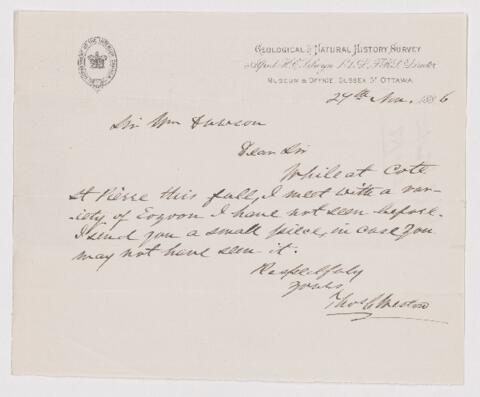 GEOLOGICAL & NATURAL HISTORY SURVEY
Alfred R.C. Selwyn LL.D. F.R.S. Director
MUSEUM & OFFICE, SUSSEX ST OTTAWA.
27th Nov. 1886
Sir Wm Dawson
Dear Sir
While at Cote
St Pierre this fall, I meet with a var-
iety of Eozoon I have not seen before.
I send you a small piece, in case you
may not have seen it.
Respectfully
Yours
Thos C Weston